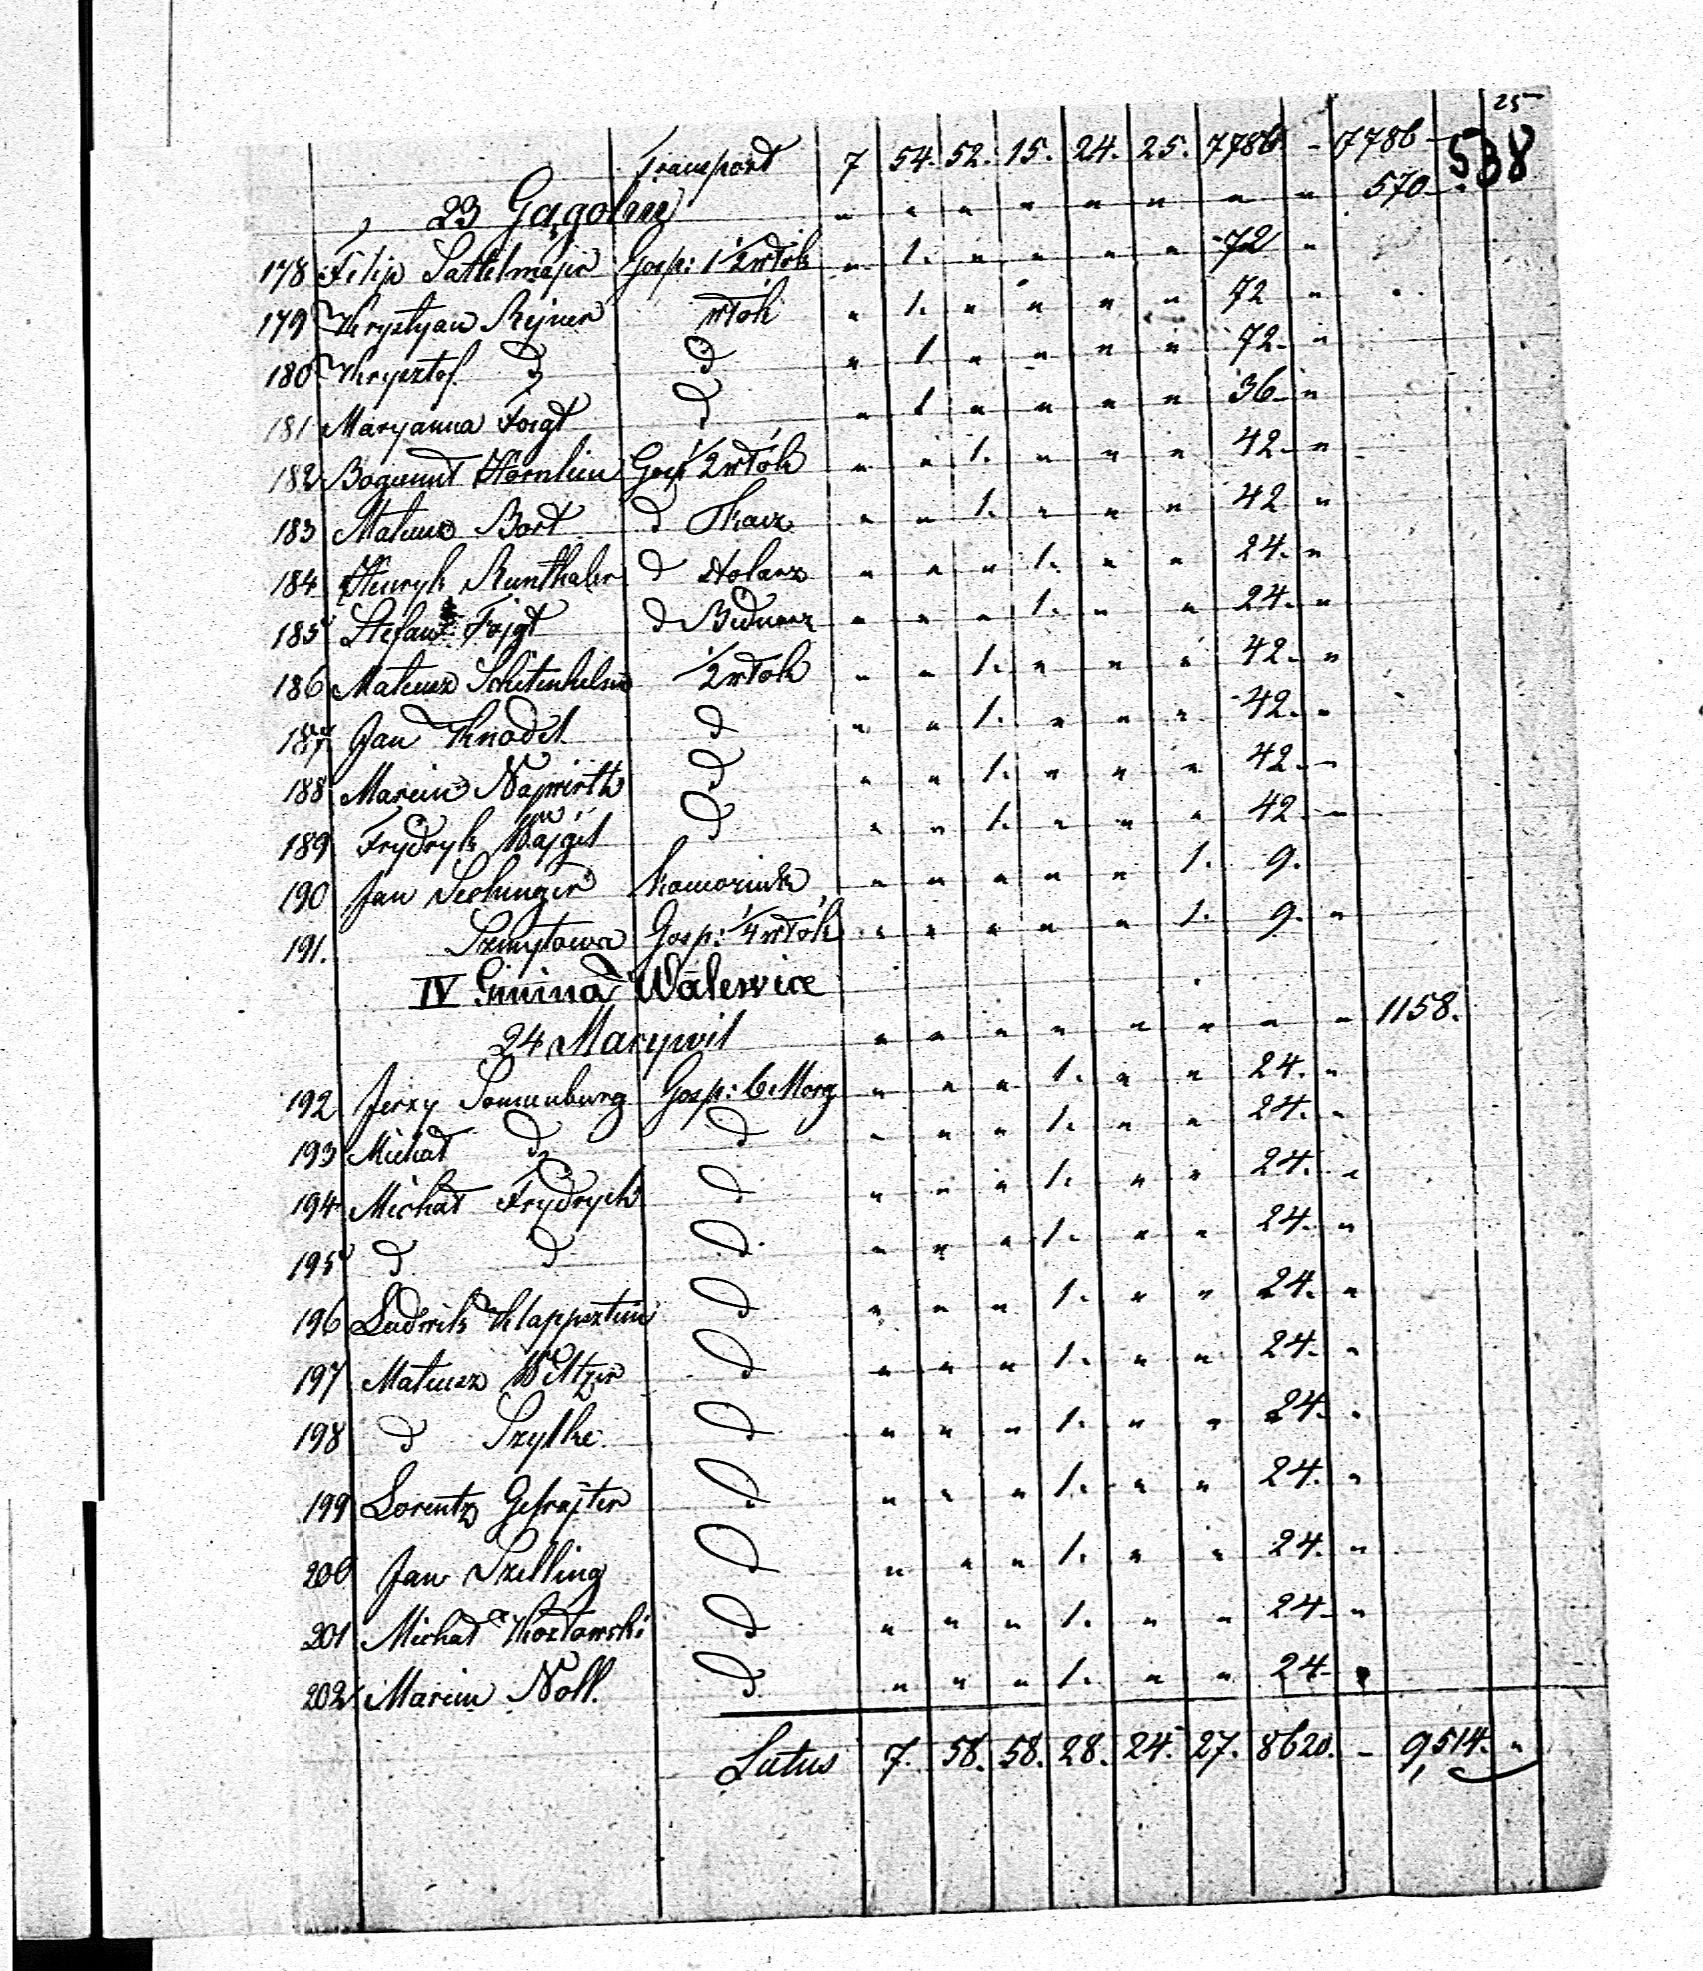 25
538
Transport 7 54. 52. 15. 24. 25. 7786 - 7786 -
23 Gągolin " " " " " " " " 570 -
178 Filip Sattelmajer Gosp: 1 1/2 włók " 1. " " " " 72 "
179 Krystyan Rejner włók " 1. " " " " 72 "
180 Krysztof d d " 1. " " " " 72. "
181 Maryanna Foigt d " 1 " " " " 36 "
182 Bogumił Hornlein Gosp 1/2 włók " " 1. " " " 42. "
183 Mateusz Bort d Tkacz " " 1. " " " 42 "
184 Henryk Runthaler d Stolarz " " " 1. " " 24. "
185 Stefan Fojgt d Bednarz " " " 1. " " 24. "
186 Mateusz 1/2 włók " " 1. " " " 42. "
187 Jan Knodel d " " 1. " " " 42. "
188 Marcin Najwirth d " " 1. " " " 42. "
189 Frydryk Wajgil d " " 1. " " " 42. "
190 Jan Komornik " " " " " 1. 9.
191. Szmytowa Gosp: 1/4 włók " " " " " 1. 9. "
IV Gmina Walewice
24 Marywil " " " " " " " " 1158.
192 Jerzy Sonnenburg Gosp: 6 Morg " " " 1. " " 24. "
193 Michał d d " " " 1. " " 24. "
194 Michał Frydrych d " " " 1. " " 24. "
195 d d d " " " 1. " " 24. "
196 Ludwik Klappsztein d " " " 1. " " 24. "
197 Mateusz Weltzer d " " " 1. " " 24. "
198 d Szylke d " " " 1. " " 24. "
199 Lorentz Gefrajter d " " " 1. " " 24. "
200 Jan Szelling d " " " 1. " " 24. "
201 Michał Kozłowski d " " " 1. " " 24. "
202 Marcin Noll. d " " " 1. " " 24. "
Latus 7. 58. 58. 28. 24. 27. 8620. - 9,514. "